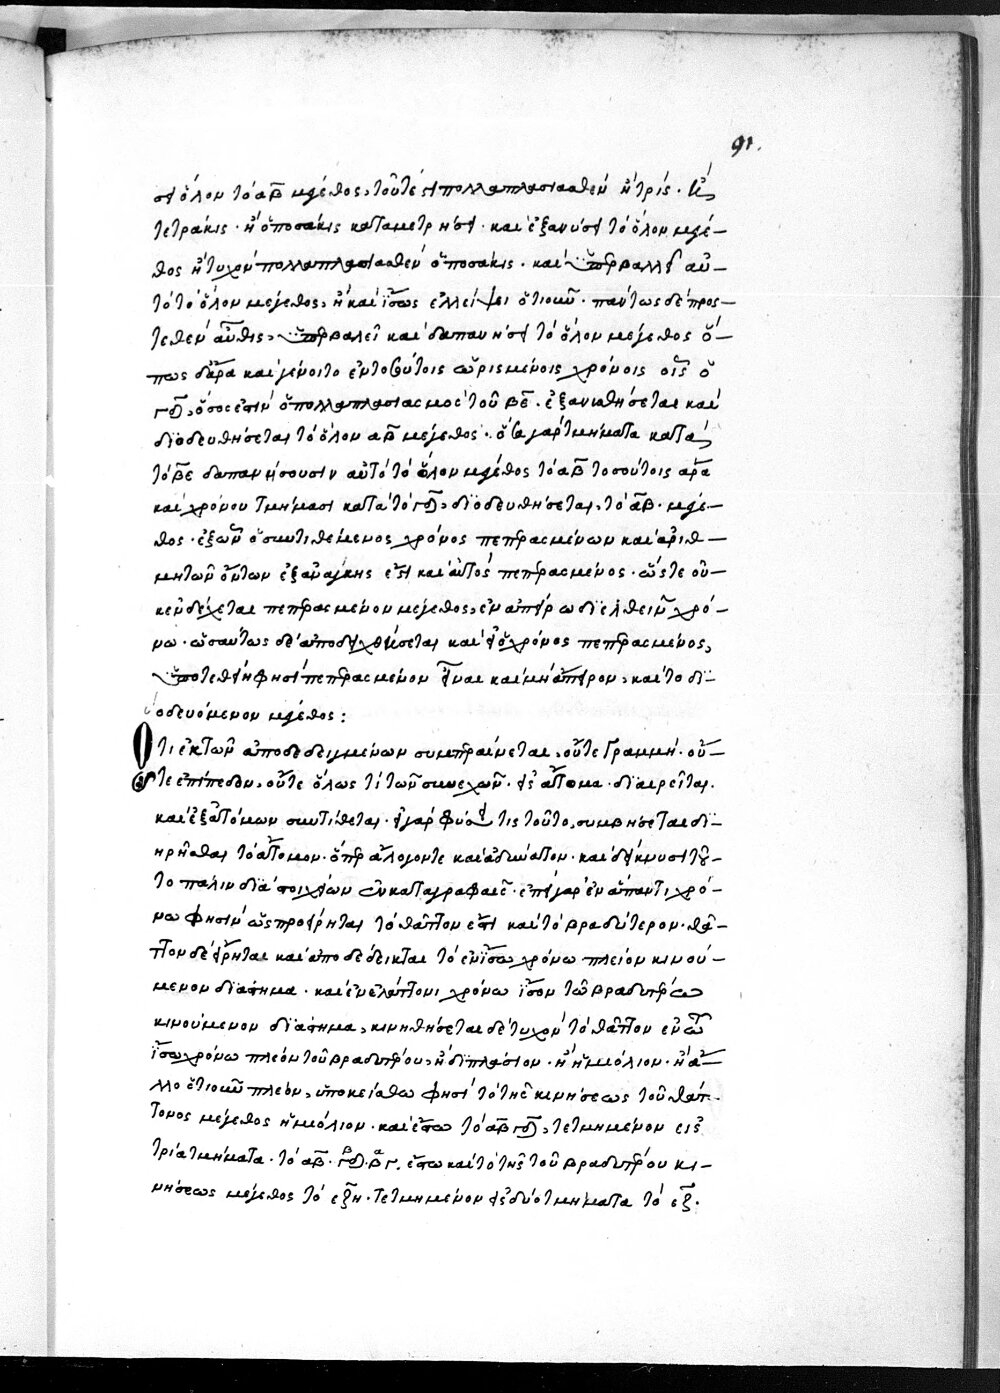 91.
σει ὅλον τὸ αβ μέγεθος, τουτέστι πολλαπλασιασθὲν ἢ τρίς· ἢ
τετράκις· ἢ ὁποσάκις καταμετρήσει· καὶ ἐξανύσει τὸ ὅλον μέγε–
θος ἢ τυχὸν πολλαπλασιασθὲν ὁποσάκις· καὶ ὑπερβάλλει αὐ–
τὸ τὸ ὅλον μέγεθος, ἢ καὶ ἴσως ἐλλείψει ὁτιοῦν· πάντως δὲ προσ–
τεθὲν αὖθις, ὑπερβαλεῖ καὶ δαπανήσει τὸ ὅλον μέγεθος ὅ–
πως δ' ἄρα καὶ γένοιτο ἐν τοσούτοις ὡρισμένοις χρόνοις οἷς ὁ
γδ, ὅσος ἐστὶν ὁ πολλαπλασιασμὸς τοῦ βε· ἐξανισθήσεται καὶ
διοδευθήσεται τὸ ὅλον αβ μέγεθος· ὅσα γὰρ τμήματα κατὰ
τὸ βε δαπανήσουσιν αὐτὸ τὸ ὅλον μέγεθος τὸ αβ τοσούτοις ἄρα
καὶ χρόνου τμήμασι κατὰ τὸ γδ, διοδευθήσεται, τὸ αβ· μέγε–
θος· ἐξ ὧν ὁ συντιθέμενος χρόνος πεπερασμένων καὶ ἀριθ–
μητῶν ὄντων ἐξανάγκης ἐστὶ καὶ αὐτὸς πεπερασμένος· ὥστε οὐ–
κ ἐνδέχεται πεπερασμένον μέγεθος, ἐν ἀπείρω διελθεῖν χρό–
νω· ὡσαύτως δὲ ἀποδειχθήσεται καὶ εἰ ὁ χρόνος πεπερασμένος,
ὑποτεθείη φησὶ πεπερασμένον εἶναι καὶ μὴ ἄπειρον, καὶ τὸ δι–
οδευόμενον μέγεθος:
Ὅτι ἐκ τῶν ἀποδεδειγμένων συμπεραίνεται, οὔτε γραμμὴ· οὔ–
τε ἐπίπεδον, οὔτε ὅλως τι τῶν συνεχῶν· εἰς ἄτομα· διαιρεῖται.
καὶ ἐξ ἀτόμων συντίθεται· εἰ γὰρ φύσει τις τοῦτο, συμβήσεται δι–
ηρῆσθαι τὸ ἄτομον· ὅπερ ἄλογόν τε καὶ ἀδύνατον· καὶ δείκνυσι τοῦ–
το πάλιν διὰ στοιχείων ἐν καταγραφαῖς· ἐπεὶ γὰρ ἐν ἅπαντι χρό–
νω φησὶν ὡς προείρηται τὸ θᾶττον ἐστὶ καὶ τὸ βραδύτερον· θᾶτ–
τον δὲ εἴρηται καὶ ἀποδέδεικται τὸ ἐν ἴσω χρόνω πλεῖον κινού–
μενον διάστημα· καὶ ἐν ἐλάττονι χρόνω ἴσον τῶ βραδυτέρω
κινούμενον διάστημα, κινηθήσεται δὲ τυχὸν τὸ θᾶττον ἐν ᾧ
ἴσω χρόνω πλέον τοῦ βραδυτέρου, ἢ διπλάσιον· ἢ ἡμιόλιον· ἢ ἄ–
λλο ὁτιοῦν πλέον, ὑποκείσθω φησὶ τὸ τῆς κινήσεως τοῦ θάτ–
τονος μέγεθος ἡμιόλιον· καὶ ἔστω τὸ αβγδ, τετμημένον εἰς
τρία τμήματα· τὸ αβ· γδ. βγ. ἔστω καὶ τὸ τῆς τοῦ βραδυτέρου κι–
νήσεως μέγεθος τὸ εζη· τετμημένον εἰς δύο τμήματα τὸ εζ·